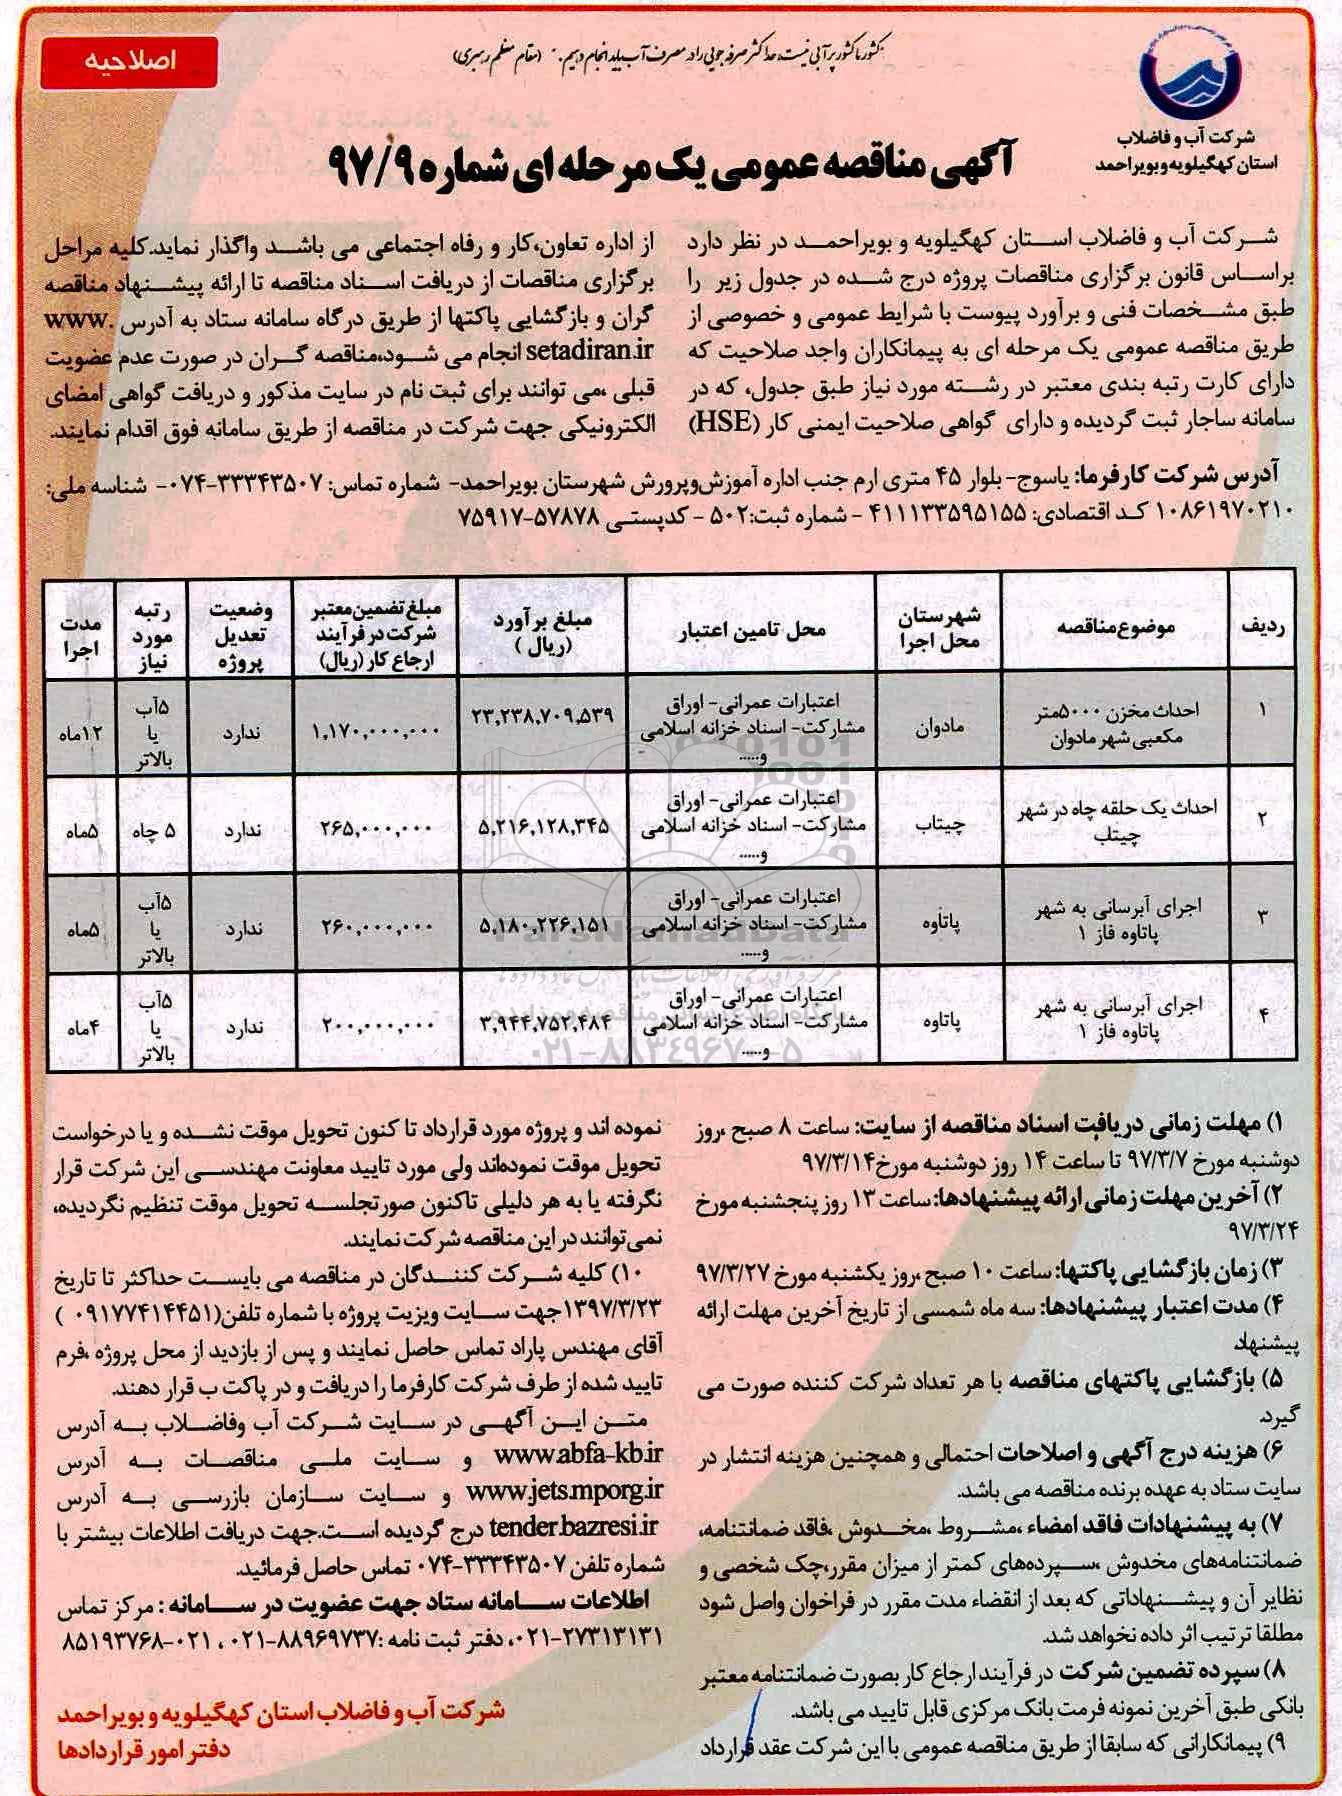 اصلاحیه
کشور ما کشور پر آبی نیست، حداکثر صرفه جویی را در مصرف آب باید انجام دهیم. (مقام معظم رهبری)
شرکت آب و فاضلاب
استان کهگیلویه و بویراحمد
آگهی مناقصه عمومی یک مرحله ای شماره ۹۷/۹
شرکت آب و فاضلاب استان کهگیلویه و بویراحمد در نظر دارد
براساس قانون برگزاری مناقصات پروژه درج شده در جدول زیر را
طبق مشخصات فنی و برآورد پیوست با شرایط عمومی و خصوصی از
طریق مناقصه عمومی یک مرحله ای به پیمانکاران واجد صلاحیت که
دارای کارت رتبه بندی معتبر در رشته مورد نیاز طبق جدول، که در
سامانه ساجار ثبت گردیده و دارای گواهی صلاحیت ایمنی کار (HSE)
از اداره تعاون،کار و رفاه اجتماعی می باشد واگذار نماید.کلیه مراحل
برگزاری مناقصات از دریافت اسناد مناقصه تا ارائه پیشنهاد مناقصه
گران و بازگشایی پاکتها از طریق درگاه سامانه ستاد به آدرس www.
setadiran.ir انجام می شود،مناقصه گران در صورت عدم عضویت
قبلی ،می توانند برای ثبت نام در سایت مذکور و دریافت گواهی امضای
الکترونیکی جهت شرکت در مناقصه از طریق سامانه فوق اقدام نمایند.
آدرس شرکت کارفرما: یاسوج- بلوار ۴۵ متری ارم جنب اداره آموزش‌وپرورش شهرستان بویراحمد- شماره تماس: ۳۳۳۴۳۵۰۷-۰۷۴- شناسه ملی:
۱۰۸۶۱۹۷۰۲۱۰ کد اقتصادی: ۴۱۱۱۳۳۵۹۵۱۵۵ - شماره ثبت:۵۰۲ - کدپستی ۵۷۸۷۸-۷۵۹۱۷
ردیف | موضوع مناقصه | شهرستان محل اجرا | محل تامین اعتبار | مبلغ برآورد (ریال ) | مبلغ تضمین معتبر شرکت در فرآیند ارجاع کار (ریال) | وضعیت تعدیل پروژه | رتبه مورد نیاز | مدت اجرا
۱ | احداث مخزن ۵۰۰۰متر مکعبی شهر مادوان | مادوان | اعتبارات عمرانی- اوراق مشارکت- اسناد خزانه اسلامی و..... | ۲۳,۲۳۸,۷۰۹,۵۳۹ | ۱,۱۷۰,۰۰۰,۰۰۰ | ندارد | ۵آب یا بالاتر | ۱۲ماه
۲ | احداث یک حلقه چاه در شهر چیتاب | چیتاب | اعتبارات عمرانی- اوراق مشارکت- اسناد خزانه اسلامی و..... | ۵,۲۱۶,۱۲۸,۳۴۵ | ۲۶۵,۰۰۰,۰۰۰ | ندارد | ۵ چاه | ۵ماه
۳ | اجرای آبرسانی به شهر پاتاوه فاز ۱ | پاتاوه | اعتبارات عمرانی- اوراق مشارکت- اسناد خزانه اسلامی و..... | ۵,۱۸۰,۲۲۶,۱۵۱ | ۲۶۰,۰۰۰,۰۰۰ | ندارد | ۵آب یا بالاتر | ۵ماه
۴ | اجرای آبرسانی به شهر پاتاوه فاز ۱ | پاتاوه | اعتبارات عمرانی- اوراق مشارکت- اسناد خزانه اسلامی و..... | ۳,۹۴۴,۷۵۲,۴۸۴ | ۲۰۰,۰۰۰,۰۰۰ | ندارد | ۵آب یا بالاتر | ۴ماه
ParsNamadData
۰۲۱-۸۸۳۴۹۶۷۰-۵
۱) مهلت زمانی دریافت اسناد مناقصه از سایت: ساعت ۸ صبح ،روز
دوشنبه مورخ ۹۷/۳/۷ تا ساعت ۱۴ روز دوشنبه مورخ۹۷/۳/۱۴
۲) آخرین مهلت زمانی ارائه پیشنهادها: ساعت ۱۳ روز پنجشنبه مورخ
۹۷/۳/۲۴
۳) زمان بازگشایی پاکتها: ساعت ۱۰ صبح ،روز یکشنبه مورخ ۹۷/۳/۲۷
۴) مدت اعتبار پیشنهادها: سه ماه شمسی از تاریخ آخرین مهلت ارائه
پیشنهاد.
۵) بازگشایی پاکتهای مناقصه با هر تعداد شرکت کننده صورت می
گیرد.
۶) هزینه درج آگهی و اصلاحات احتمالی و همچنین هزینه انتشار در
سایت ستاد به عهده برنده مناقصه می باشد.
۷) به پیشنهادات فاقد امضاء ،مشروط ،مخدوش ،فاقد ضمانتنامه،
ضمانتنامه‌های مخدوش ،سپرده‌های کمتر از میزان مقرر،چک شخصی و
نظایر آن و پیشنهاداتی که بعد از انقضاء مدت مقرر در فراخوان واصل شود
مطلقا ترتیب اثر داده نخواهد شد.
۸) سپرده تضمین شرکت در فرآیند ارجاع کار بصورت ضمانتنامه معتبر
بانکی طبق آخرین نمونه فرمت بانک مرکزی قابل تایید می باشد.
۹) پیمانکارانی که سابقا از طریق مناقصه عمومی با این شرکت عقد قرارداد
نموده اند و پروژه مورد قرارداد تا کنون تحویل موقت نشده و یا درخواست
تحویل موقت نموده‌اند ولی مورد تایید معاونت مهندسی این شرکت قرار
نگرفته یا به هر دلیلی تاکنون صورتجلسه تحویل موقت تنظیم نگردیده،
نمی‌توانند در این مناقصه شرکت نمایند.
۱۰) کلیه شرکت کنندگان در مناقصه می بایست حداکثر تا تاریخ
۱۳۹۷/۳/۲۳جهت سایت ویزیت پروژه با شماره تلفن(۰۹۱۷۷۴۱۴۴۵۱ )
آقای مهندس پاراد تماس حاصل نمایند و پس از بازدید از محل پروژه ،فرم
تایید شده از طرف شرکت کارفرما را دریافت و در پاکت ب قرار دهند.
متن این آگهی در سایت شرکت آب وفاضلاب به آدرس
www.abfa-kb.ir و سایت ملی مناقصات به آدرس
www.jets.mporg.ir و سایت سازمان بازرسی به آدرس
tender.bazresi.ir درج گردیده است.جهت دریافت اطلاعات بیشتر با
شماره تلفن ۳۳۳۴۳۵۰۷-۰۷۴ تماس حاصل فرمائید.
اطلاعات سامانه ستاد جهت عضویت در سامانه : مرکز تماس
۰۲۱-۲۷۳۱۳۱۳۱، دفتر ثبت نامه :۸۸۹۶۹۷۳۷-۰۲۱ ، ۰۲۱-۸۵۱۹۳۷۶۸
شرکت آب و فاضلاب استان کهگیلویه و بویراحمد
دفتر امور قراردادها